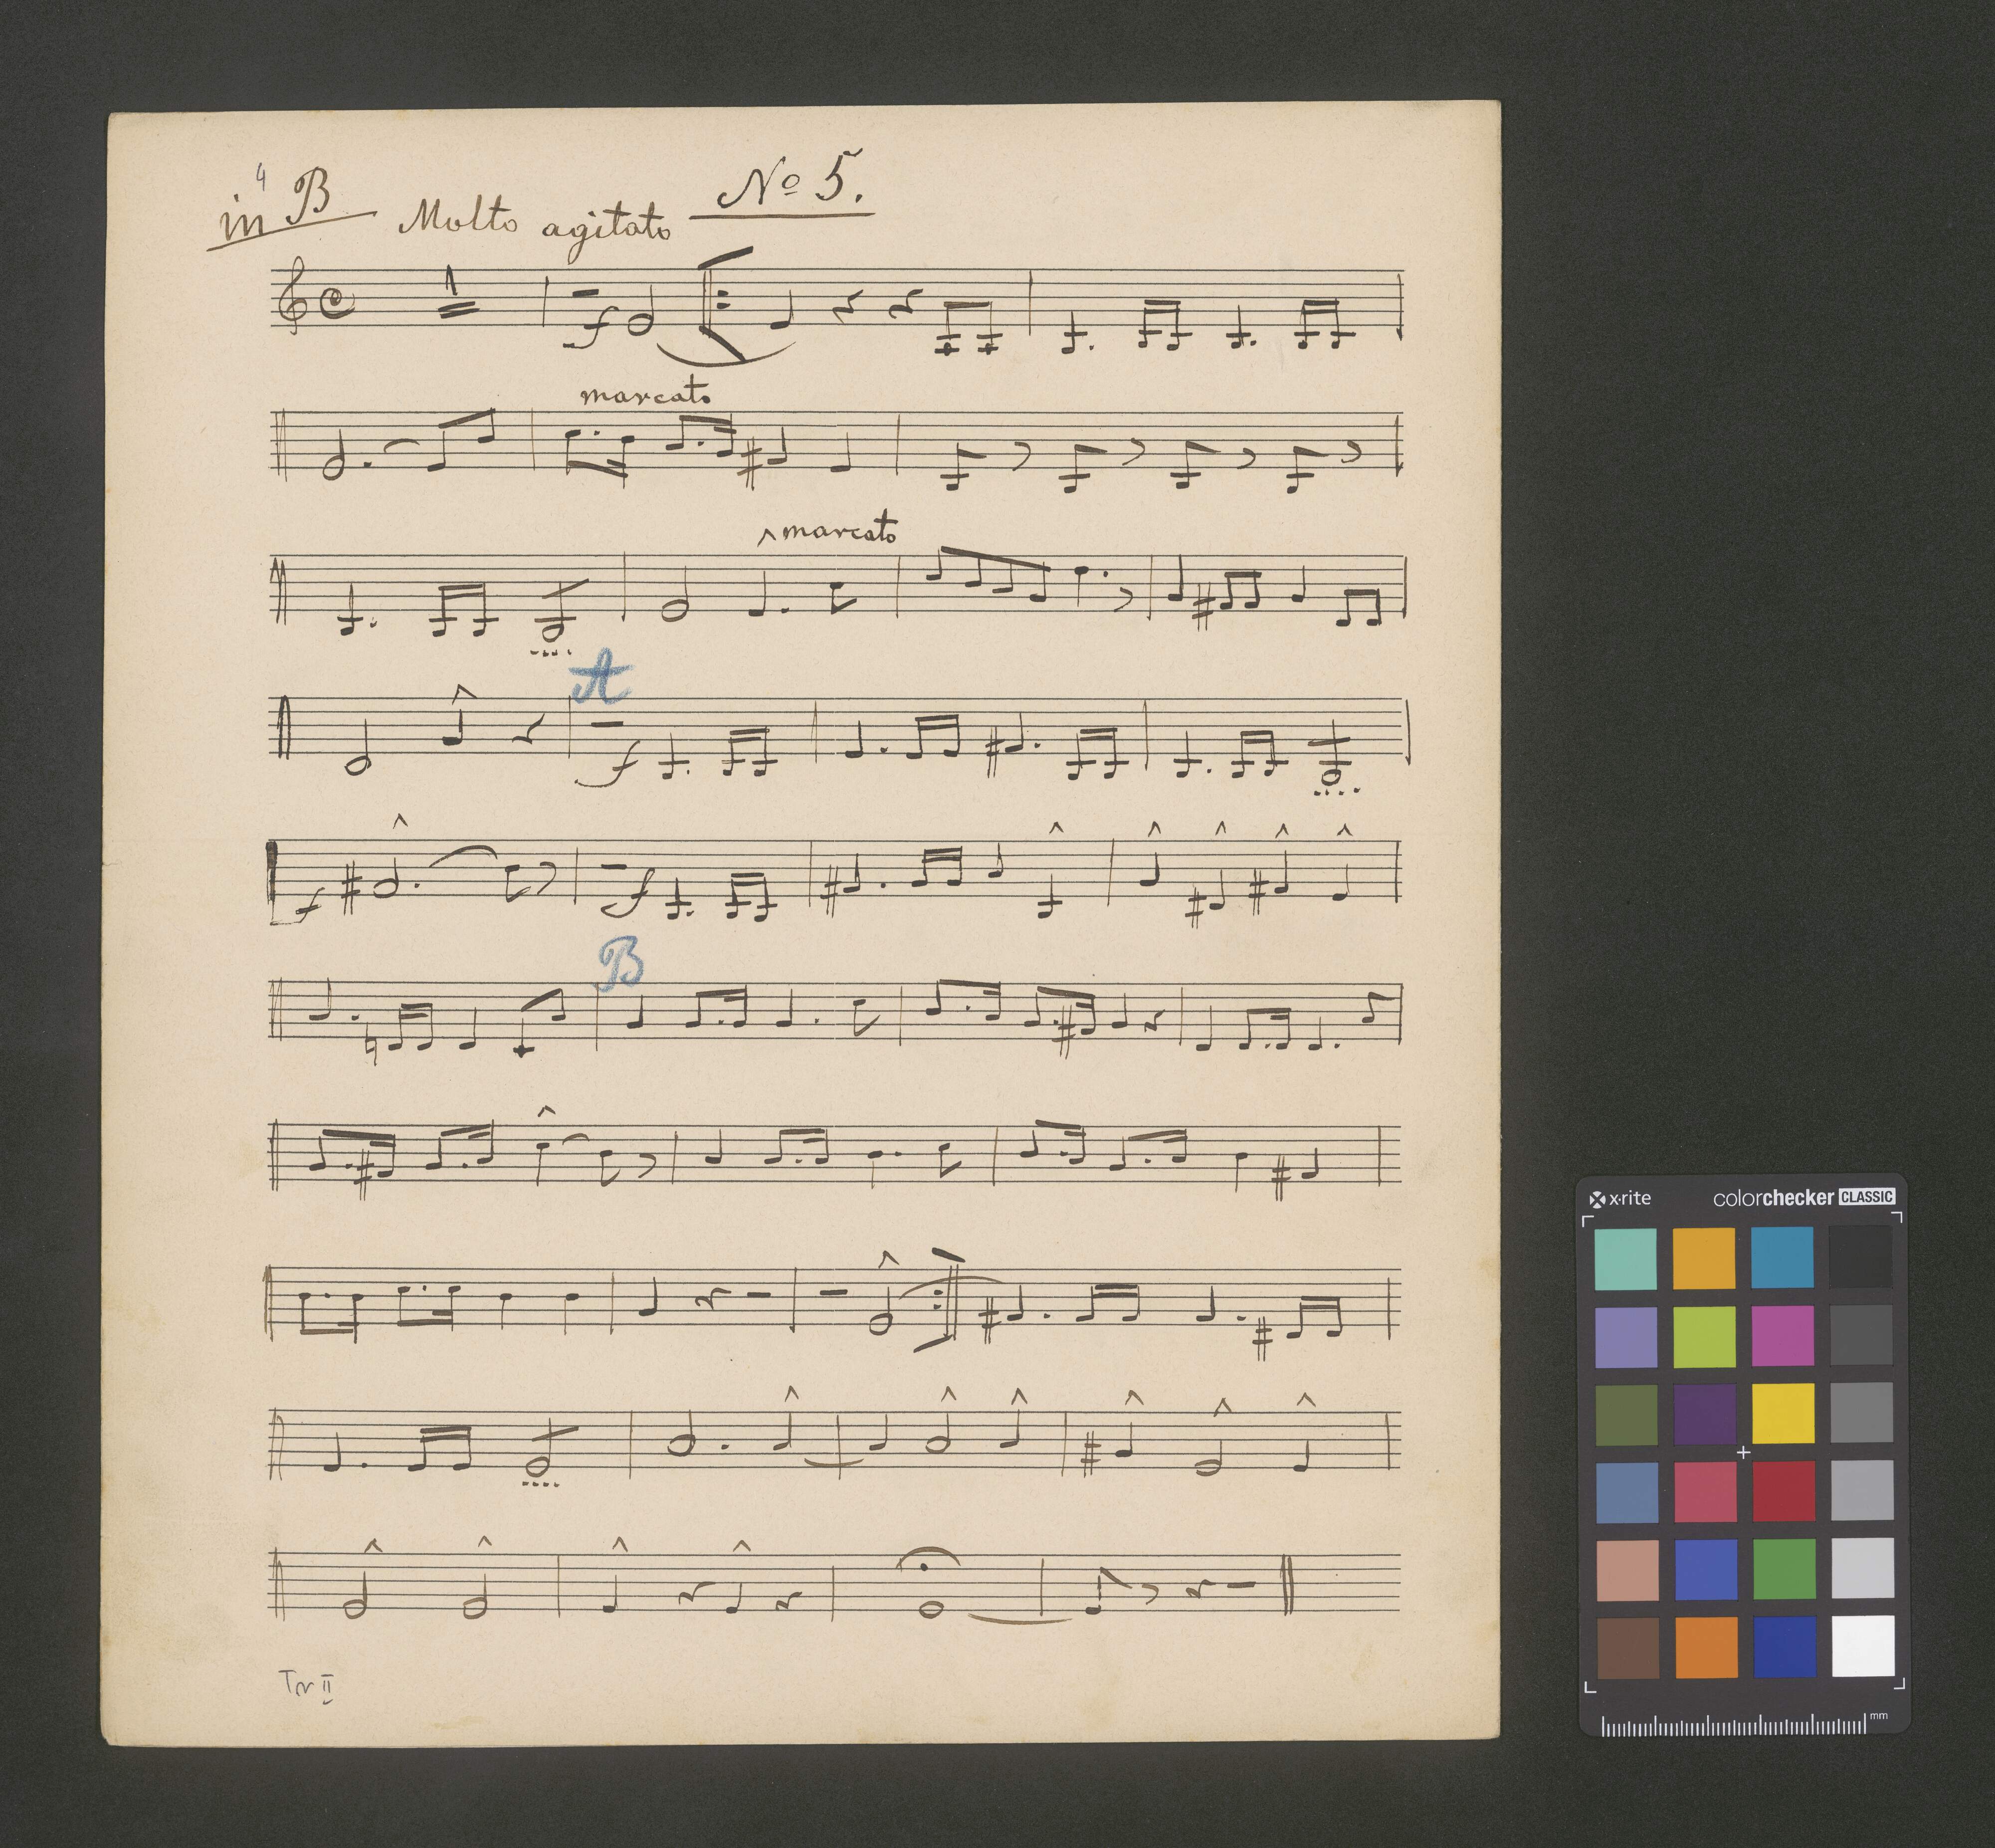 4
in B Molto agitato No 5.
1
f
marcato
marcato
A
f
f f
B
Tr II
x-rite colorchecker CLASSIC
mm